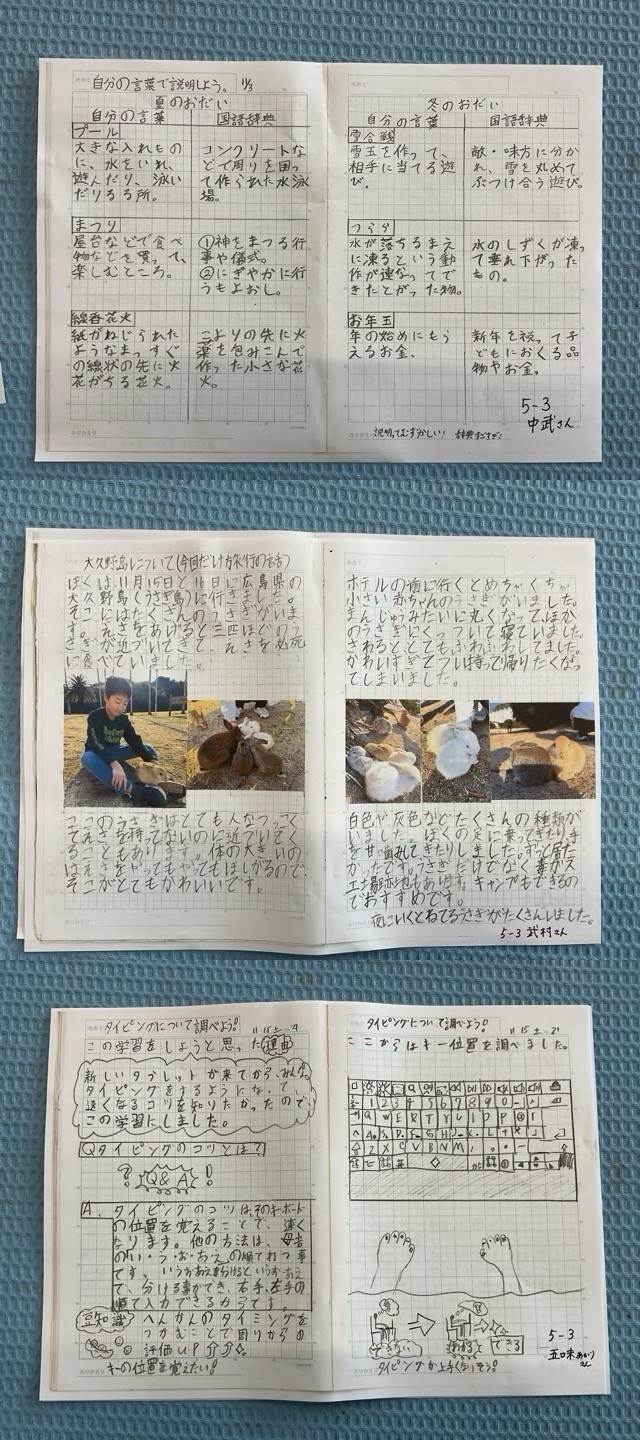 自分の言葉で説明しよう。 11/3
夏のおだい
自分の言葉 国語辞典
プール
大きな入れもの
に、水をいれ、
遊んだり、泳い
だりする所。
コンクリートな
どで周りを囲っ
て作られた水泳
場。
まつり
屋台などで食べ
物などを買って、
楽しむところ。
①神をまつる行
事や儀式。
②にぎやかに行
うもよおし。
線香花火
紙がねじられた
ようなまっすぐ
の線状の先に火
花がちる花火。
こよりの先に火
薬を包みこんで
作った小さな花
火。
ふりかえり
冬のおだい
自分の言葉 国語辞典
雪合戦
雪玉を作って、
相手に当てる遊
び。
敵・味方に分か
れ、雪を丸めて
ぶつけ合う遊び。
つらら
水が落ちるまえ
に凍るという動
作が連なってで
きたとがった物。
水のしずくが凍っ
て垂れ下がった
もの。
お年玉
年の始めにもら
えるお金。
新年を祝って子
どもにおくる品
物やお金。
5-3
中武さん
ふりかえり 説明ってむずかしい! 辞典すごすぎ!
大久野島について(今回だけ旅行の話)
ぼくは、11月15日と16日に広島県の
大久野島(うさぎ島)に行きました。
そこにはたくさんのうさぎがいま
す。えさをあげると三匹ほどのう
さぎが近づいてきて、えさを必死
に食べていました。
ここのうさぎはとても人なつっこく
てえさを持ってないのに近づいてく
ることもあります。体の大きいの
はえさをやってもやってもほしがるので、
そこがとてもかわいいです。
ふりかえり
ホテルの前に行くとめちゃくちゃ
小さい赤ちゃんのうさぎがいました。
まんじゅうみたいに丸くなって、ほか
のうさぎにくっついて寝ていました。
さわるととてもふわふわしてました。
かわいすぎてつい持って帰りたくなっ
てしまいました。
白色や灰色などたくさんの種類が
いました。ぼくの足に乗ってきたり、手
を甘噛みしてきたりしました。ずっと居た
かったです。うさぎだけでなく毒ガス
工場跡地もあります。キャンプもできるの
でおすすめです。
ふりかえり 夜にいくとねてるうさぎがたくさんしました。
5-3 武村さん
タイピングについて調べよう!
この学習をしようと思った理由
新しいタブレットが来てから、みんな
タイピングをするようになって
速くなるコツを知りたかったので
この学習にしました。
Qタイピングのコツとは?
Q&A
A. タイピングのコツは、そのキーボード
の位置を覚えることで、速く
なります。他の方法は、母音
のい・う・お・あ・えの順で打つ事
です。いうおあえを分けるという・おあえ
で、分ける事ができ、右手、左手の
順で入力できるからです。
豆知識
へんかんのタイミングを
つかむことで周りからの
評価UP
キーの位置を覚えたい!
タイピングについて調べよう!
ここからはキー位置を調べました。
1 2 3 4 5 6 7 8 9 0
Q W E R T Y U I O P
Z X C V B N M
できない
できる
5-3
タイピングが上手くなりそう!